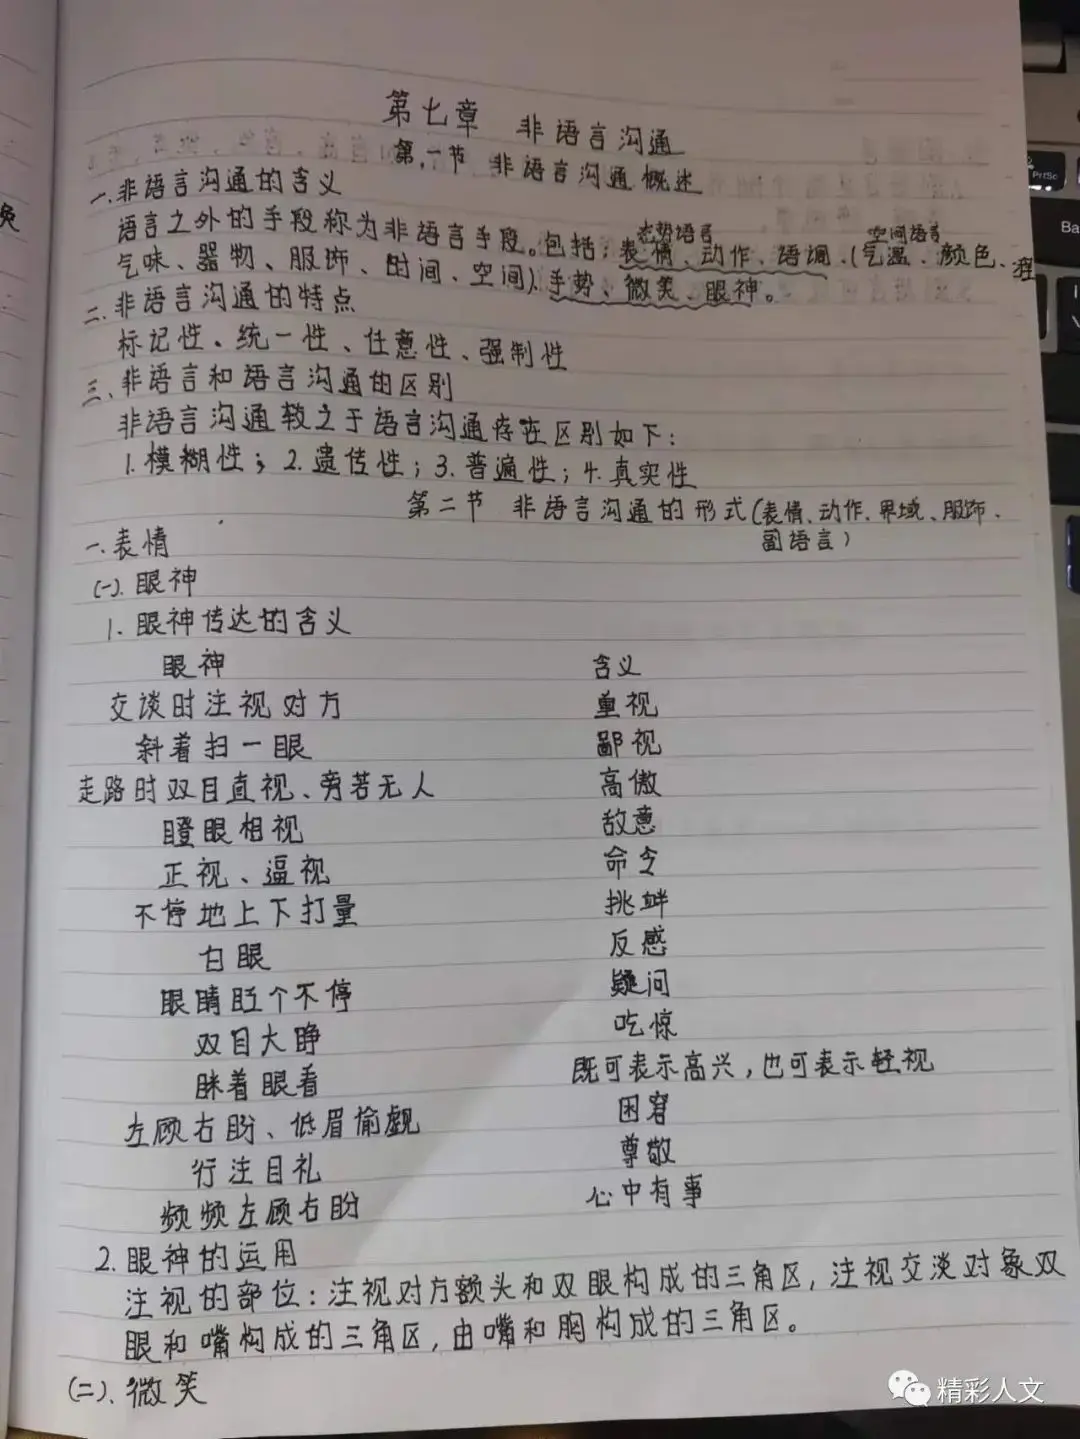 第七章 非语言沟通
第一节 非语言沟通概述
一、非语言沟通的含义
态势语言 空间语言
语言之外的手段称为非语言手段。包括:表情、动作、语调、(气温、颜色、
气味、器物、服饰、时间、空间)、手势、微笑、眼神。
二、非语言沟通的特点
标记性、统一性、任意性、强制性
三、非语言和语言沟通的区别
非语言沟通较之于语言沟通存在区别如下:
1.模糊性;2.遗传性;3.普遍性;4.真实性
第二节 非语言沟通的形式(表情、动作、界域、服饰、
副语言)
一、表情
(一).眼神
1.眼神传达的含义
眼神 含义
交谈时注视对方 重视
斜着扫一眼 鄙视
走路时双目直视、旁若无人 高傲
瞪眼相视 敌意
正视、逼视 命令
不停地上下打量 挑衅
白眼 反感
眼睛眨个不停 疑问
双目大睁 吃惊
眯着眼看 既可表示高兴,也可表示轻视
左顾右盼、低眉偷觑 困窘
行注目礼 尊敬
频频左顾右盼 心中有事
2.眼神的运用
注视的部位:注视对方额头和双眼构成的三角区,注视交谈对象双
眼和嘴构成的三角区,由嘴和胸构成的三角区。
(二).微笑
PrtSc
Ba
精彩人文